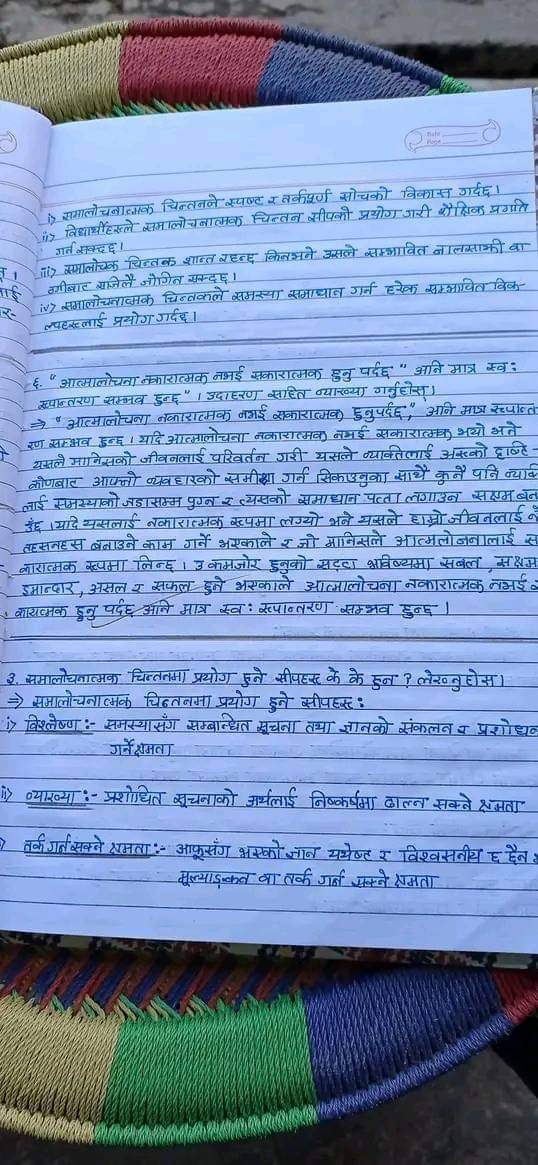 Date
Page
i> समालोचनात्मक चिन्तनले स्पष्ट र तर्कपूर्ण सोचको विकास गर्दछ।
ii> विद्यार्थीहरूले समालोचनात्मक चिन्तन सीपको प्रयोग गरी शैक्षिक प्रगति
गर्न सक्दछ।
iii> समालोचक चिन्तक शान्त रहन्छ किनभने उसले सम्भावित नालसाझी वा
सजिलै जोगिन सक्दछ।
iv> समालोचनात्मक चिन्तकले समस्या समाधान गर्न हरेक सम्भावित विक-
ल्पहरूलाई प्रयोग गर्दछ।
६. "आत्मालोचना नकारात्मक नभई सकारात्मक हुनु पर्दछ" अनि मात्र स्व:
रूपान्तरण सम्भव हुन्छ"। उदाहरण सहित व्याख्या गर्नुहोस्।
⇒ "आत्मालोचना नकारात्मक नभई सकारात्मक हुनुपर्दछ," अनि मात्र रूपान्त
रण सम्भव हुन्छ। यदि आत्मालोचना नकारात्मक नभई सकारात्मक भयो भने
यसले मानिसको जीवनलाई परिवर्तन गरी यसले व्यक्तिलाई अरूको दृष्टि-
कोणबाट आफ्नो व्यवहारको समीक्षा गर्न सिकाउनुका साथै कुनै पनि व्यक्ति
लाई समस्याको जडासम्म पुग्न र त्यसको समाधान पत्ता लगाउन सक्षम बन
छ। यदि यसलाई नकारात्मक रूपमा लग्यो भने यसले हाम्रो जीवनलाई नै
तहसनहस बनाउने काम गर्ने भएकाले र जो मानिसले आत्मलोचनालाई स
कारात्मक रूपमा लिन्छ। उ कमजोर हुनुको सट्टा भविष्यमा सबल, सक्षम
इमान्दार, असल र सफल हुने भएकाले आत्मालोचना नकारात्मक नभई स
कारात्मक हुनु पर्दछ अनि मात्र स्व: रूपान्तरण सम्भव हुन्छ।
३. समालोचनात्मक चिन्तनमा प्रयोग हुने सीपहरू के के हुन? लेख्नुहोस।
⇒ समालोचनात्मक चिन्तनमा प्रयोग हुने सीपहरू:
i> विश्लेष्ण:- समस्यासँग सम्बन्धित सूचना तथा ज्ञानको संकलन र प्रशोधन
गर्ने क्षमता
ii> व्याख्या:- प्रशोधित सूचनाको अर्थलाई निष्कर्षमा ढाल्न सक्ने क्षमता
तर्क गर्न सक्ने क्षमता:- आफूसँग भएको ज्ञान यथेष्ट र विश्वसनीय छ छैन
मूल्याङ्कन वा तर्क गर्न सक्ने क्षमता